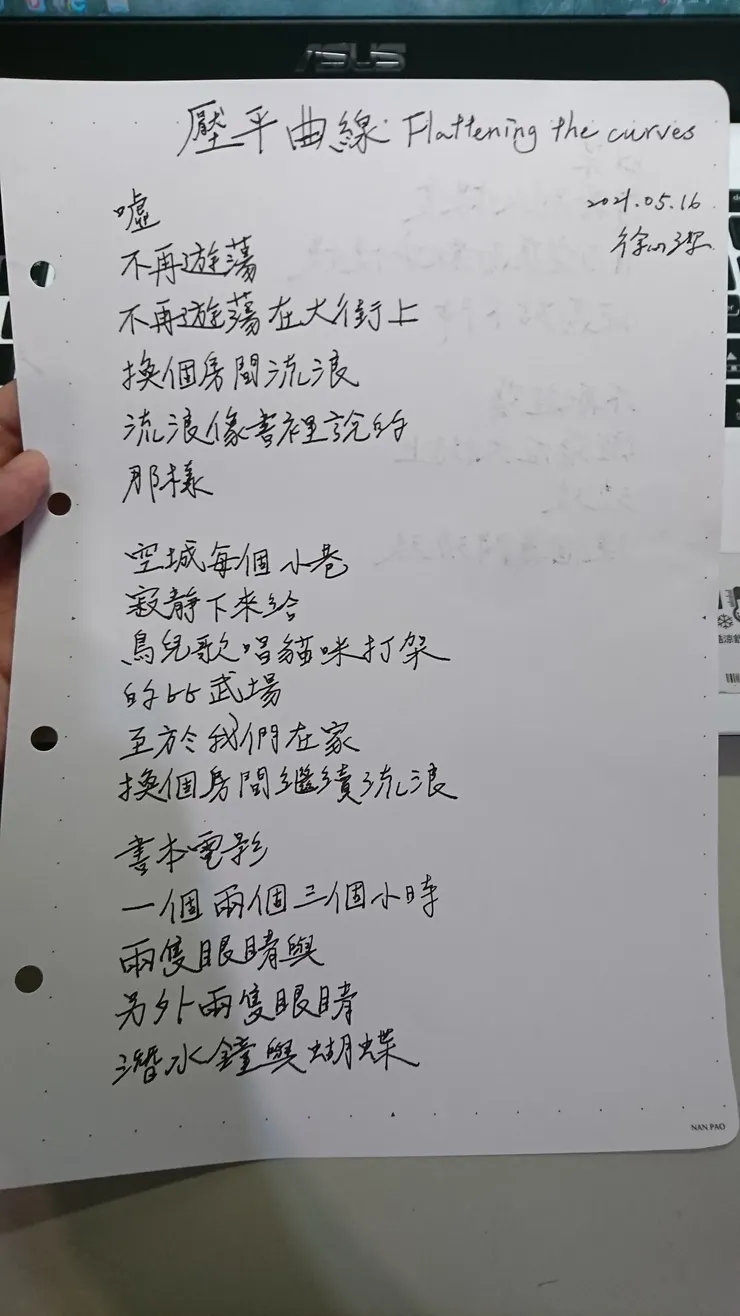 ASUS
壓平曲線 Flattening the curves
2021.05.16
噓
不再遊蕩
不再遊蕩在大街上
換個房間流浪
流浪像書裡說的
那樣
空城每個小巷
寂靜下來給
鳥兒歌唱貓咪打架
的比武場
至於我們在家
換個房間繼續流浪
書本電影
一個兩個三個小時
兩隻眼睛與
另外兩隻眼睛
潛水鐘與蝴蝶
NAN PAO